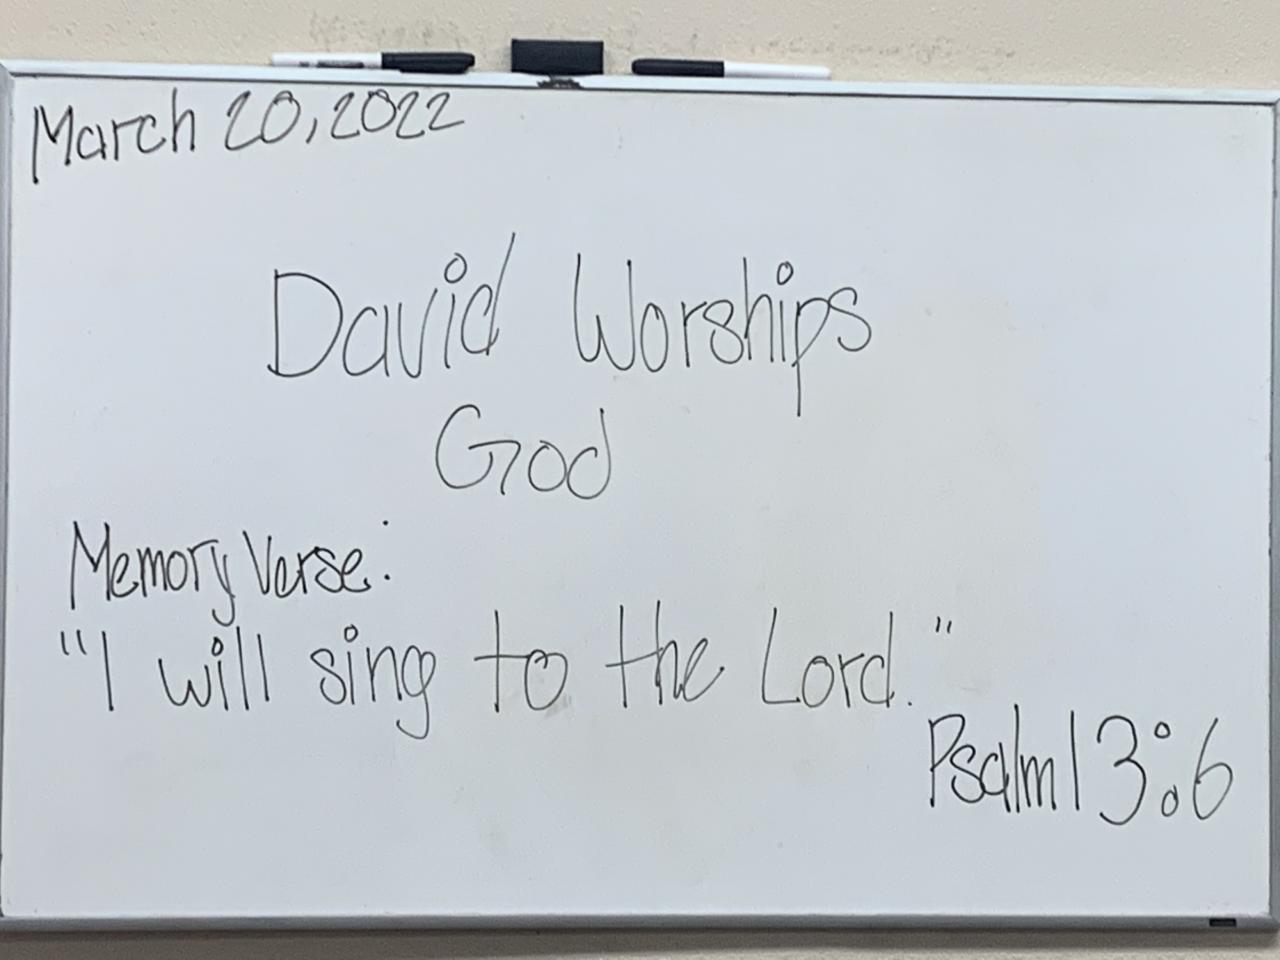 March 20, 2022
David Worships
God
Memory Verse:
"I will sing to the Lord."
Psalm 13:6